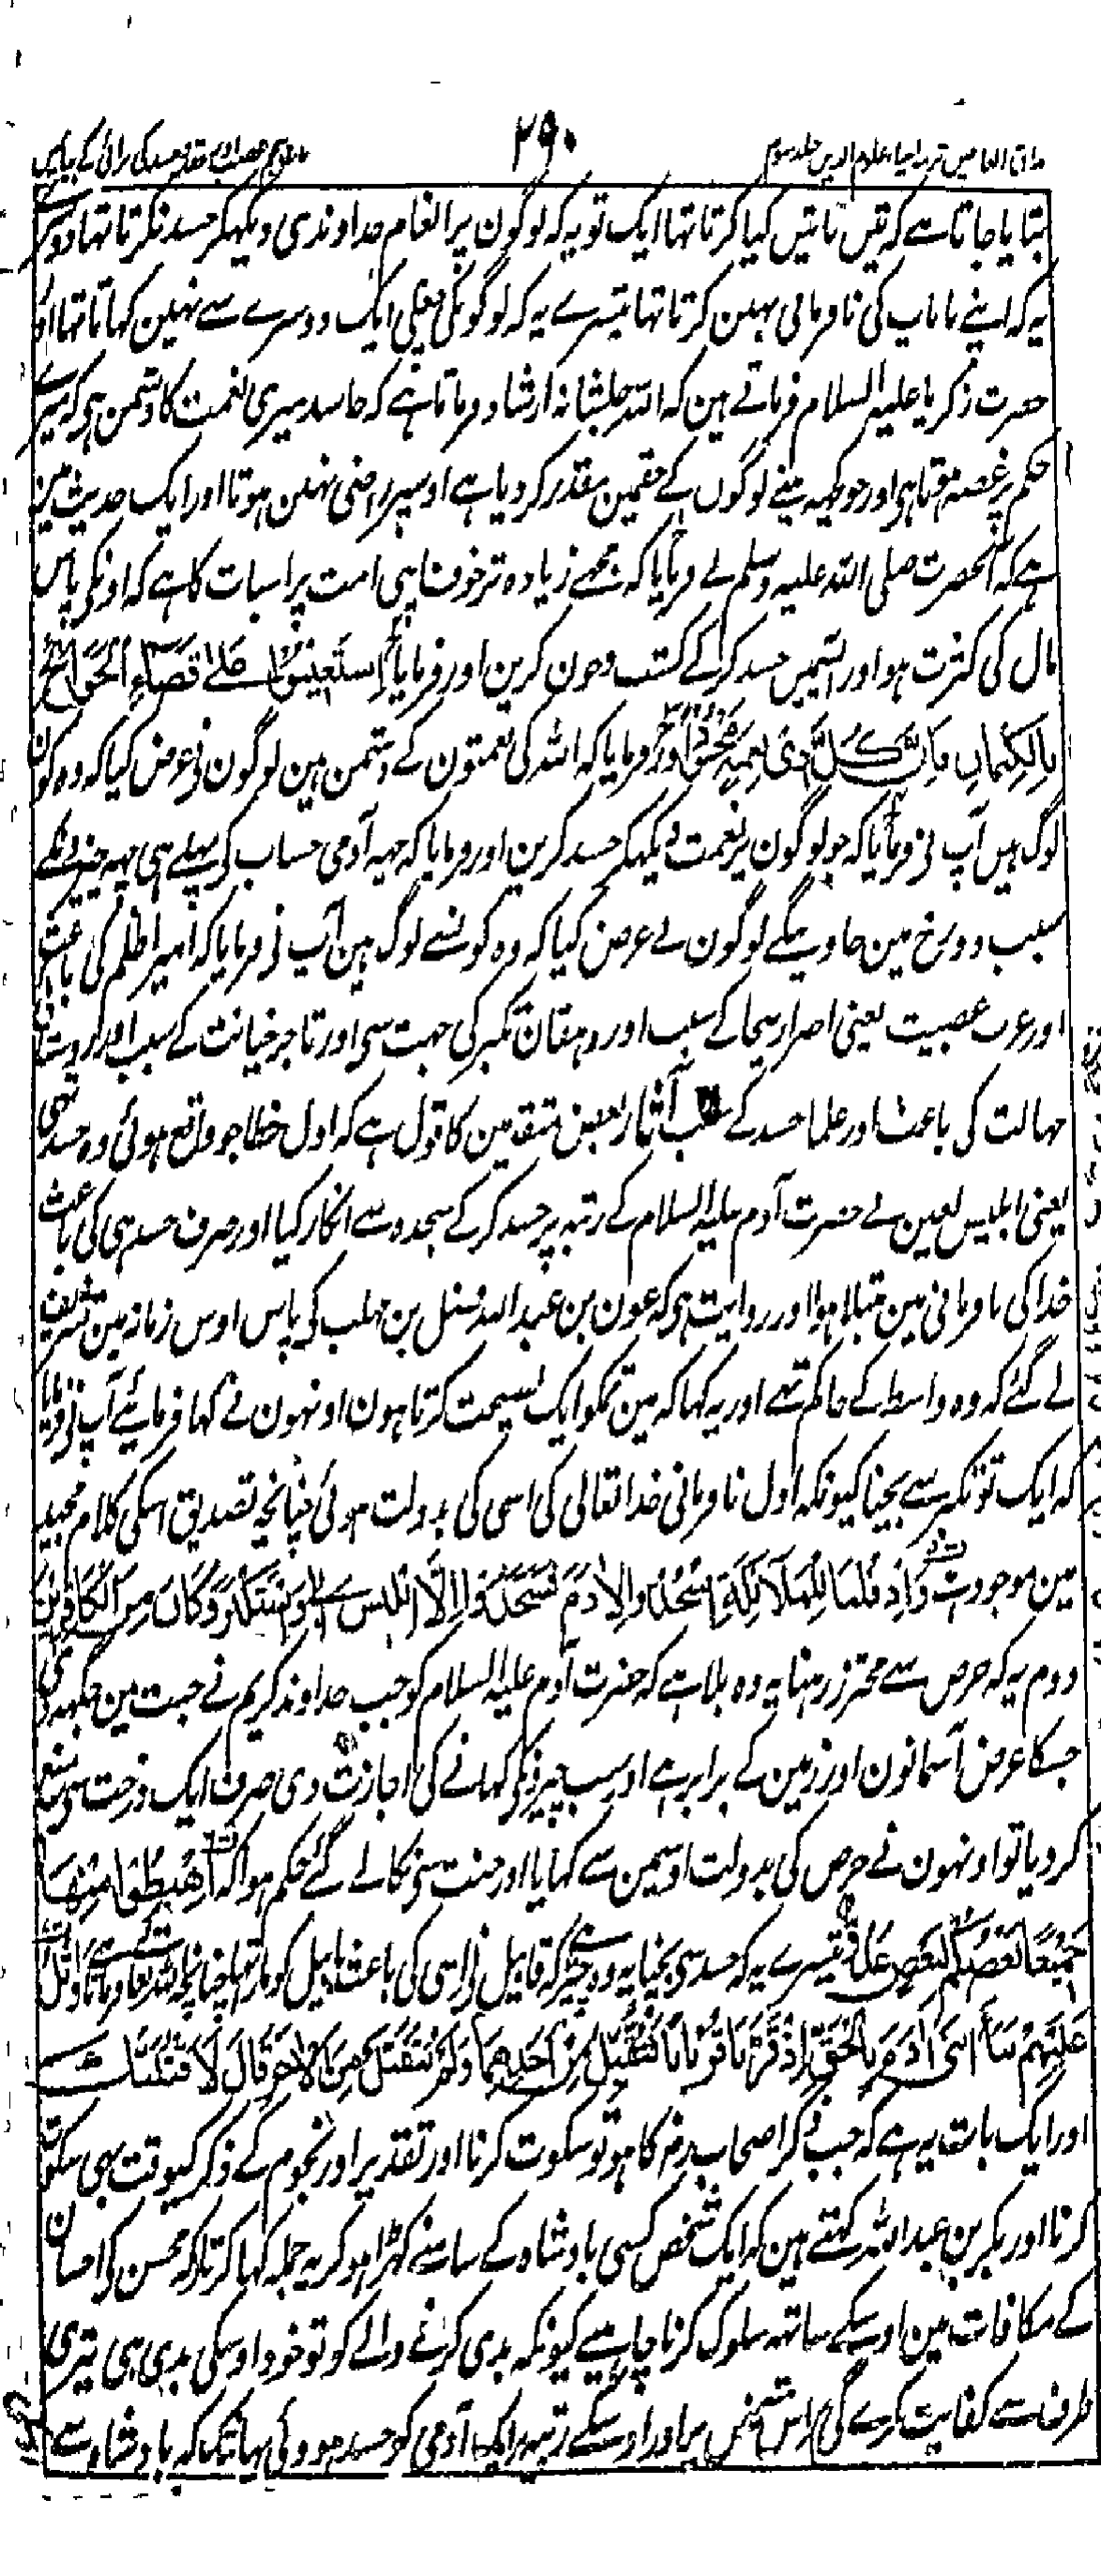 مذاق العارفین ترجمہ احیاء علوم الدین جلد سوم
۲۹۰
بتایا جاتا ہے کہ تین باتیں کیا کرتا تہا ایک تو یہ کہ لوگون پر انعام خداوندی دیکہکر حسد نکرتا تہا دوسرے
یہ کہ اپنے ما باپ کی نافرمانی نہین کرتا تہا تیسرے یہ کہ لوگونکی چغلی ایک دوسرے سے نہین کہاتا تہا اور
حضرت زکریا علیہ السلام فرماتے ہین کہ اللہ جلشانہ ارشاد فرماتا ہے کہ حاسد میری نعمت کا دشمن ہی کہ میرے
حکم پر غصہ ہوتا ہی اور جو کچہ مینے لوگوں کے حقمین مقدر کر دیا ہے اوسپر راضی نہین ہوتا اور ایک حدیث مین
ہے کہ آنحضرت صلی اللہ علیہ وسلم نے فرمایا کہ مجھے زیادہ تر خوف اپنی امت پر اسبات کا ہے کہ اونکی پاس
مال کی کثرت ہو اور آپسمیں حسد کر کے کشت وخون کرین اور فرمایا اِسْتَعِیْنُوْا عَلٰی قَضَاءِ الْحَوَائِجِ
بِالْکِتْمَانِ فَاِنَّ کُلَّ ذِیْ نِعْمَةٍ مَحْسُوْدٌ اور فرمایا کہ اللہ کی نعمتون کے دشمن ہین لوگون نی عرض کیا کہ وہ کون
لوگ ہیں آپ نی فرمایا کہ جو لوگون پر نعمت دیکہکر حسد کرین اور فرمایا کہ چہہ آدمی حساب کی پہلے ہی چہہ چیزونکے
سبب دوزخ مین جاوینگے لوگون نے عرض کیا کہ وہ کونسے لوگ ہین آپ نی فرمایا کہ امیر ظلم کی باعث
اور عرب عصبیت یعنی اصرار بیجا کے سبب اور دہقان تکبر کی جہت سی اور تاجر خیانت کے سبب اور روستائی
جہالت کی باعث اور علما حسد کے سبب آثار بعض متقدمین کا قول ہے کہ اول خطا جو واقع ہوئی وہ حسد تھی
یعنی ابلیس لعین نے حضرت آدم علیہ السلام کے رتبہ پر حسد کر کے سجدہ سے انکار کیا اور صرف حسد ہی کی باعث
خدا کی نافرمانی مین مبتلا ہوا اور روایت ہی کہ عون بن عبد اللہ فضل بن مہلب کی پاس اوس زمانہ مین تشریف
لے گئے کہ وہ واسط کے حاکم تہے اور یہ کہا کہ مین تمکو ایک نصیحت کرتا ہون اونہون نے کہا فرمائیے آپ نی فرمایا
کہ ایک تو تکبر سے بچنا کیونکہ اول نافرمانی خدا تعالی کی اسی کی بدولت ہوئی چنانچہ تصدیق اسکی کلام مجید
مین موجود ہے وَاِذْ قُلْنَا لِلْمَلَائِکَةِ اسْجُدُوْا لِاٰدَمَ فَسَجَدُوْا اِلَّا اِبْلِیْسَ اَبٰی وَاسْتَکْبَرَ وَکَانَ مِنَ الْکَافِرِیْنَ
دوم یہ کہ حرص سے محترز رہنا یہ وہ بلا ہے کہ حضرت آدم علیہ السلام کو جب خداوند کریم نے جنت مین جگہہ دی
جسکا عرض آسمانون اور زمین کے برابر ہے اور سب چیزونکی کہانے کی اجازت دی صرف ایک درخت سی منع
کر دیا تو اونہون نے حرص کی بدولت اوسمین سے کہایا اور جنت سی نکالے گئے حکم ہوا کہ اِهْبِطُوْا مِنْهَا
جَمِیْعًا بَعْضُکُمْ لِبَعْضٍ عَدُوٌّ تیسرے یہ کہ حسد سی بچنا یہ وہ چیز ہے کہ قابیل نی اسی کی باعث ہابیل کو مارا تہا چنانچہ اللہ تعالی فرماتا ہے وَاتْلُ
عَلَیْهِمْ نَبَأَ ابْنَیْ اٰدَمَ بِالْحَقِّ اِذْ قَرَّبَا قُرْبَانًا فَتُقُبِّلَ مِنْ اَحَدِهِمَا وَلَمْ یُتَقَبَّلْ مِنَ الْاٰخَرِ قَالَ لَاَقْتُلَنَّکَ
اور ایک بات یہ ہے کہ جب ذکر اصحاب رض کا ہو تو سکوت کرنا اور تقدیر اور نجوم کے ذکر کیوقت بہی سکوت
کرنا اور بکر بن عبد اللہ کہتے ہین کہ ایک شخص کسی بادشاہ کے سامنے کہڑا ہو کر یہ جملہ کہا کرتا کہ محسن کی احسان
کے مکافات مین اوسکے ساتہہ سلوک کرنا چاہیے کیونکہ بدی کرنے والے کو تو خود اوسکی بدی ہی تیری
طرف سے کفایت کرے گی اس شخص پر اور اوسکے رتبہ پر ایک آدمی کو حسد ہوا یہانتک کہ بادشاہ سے